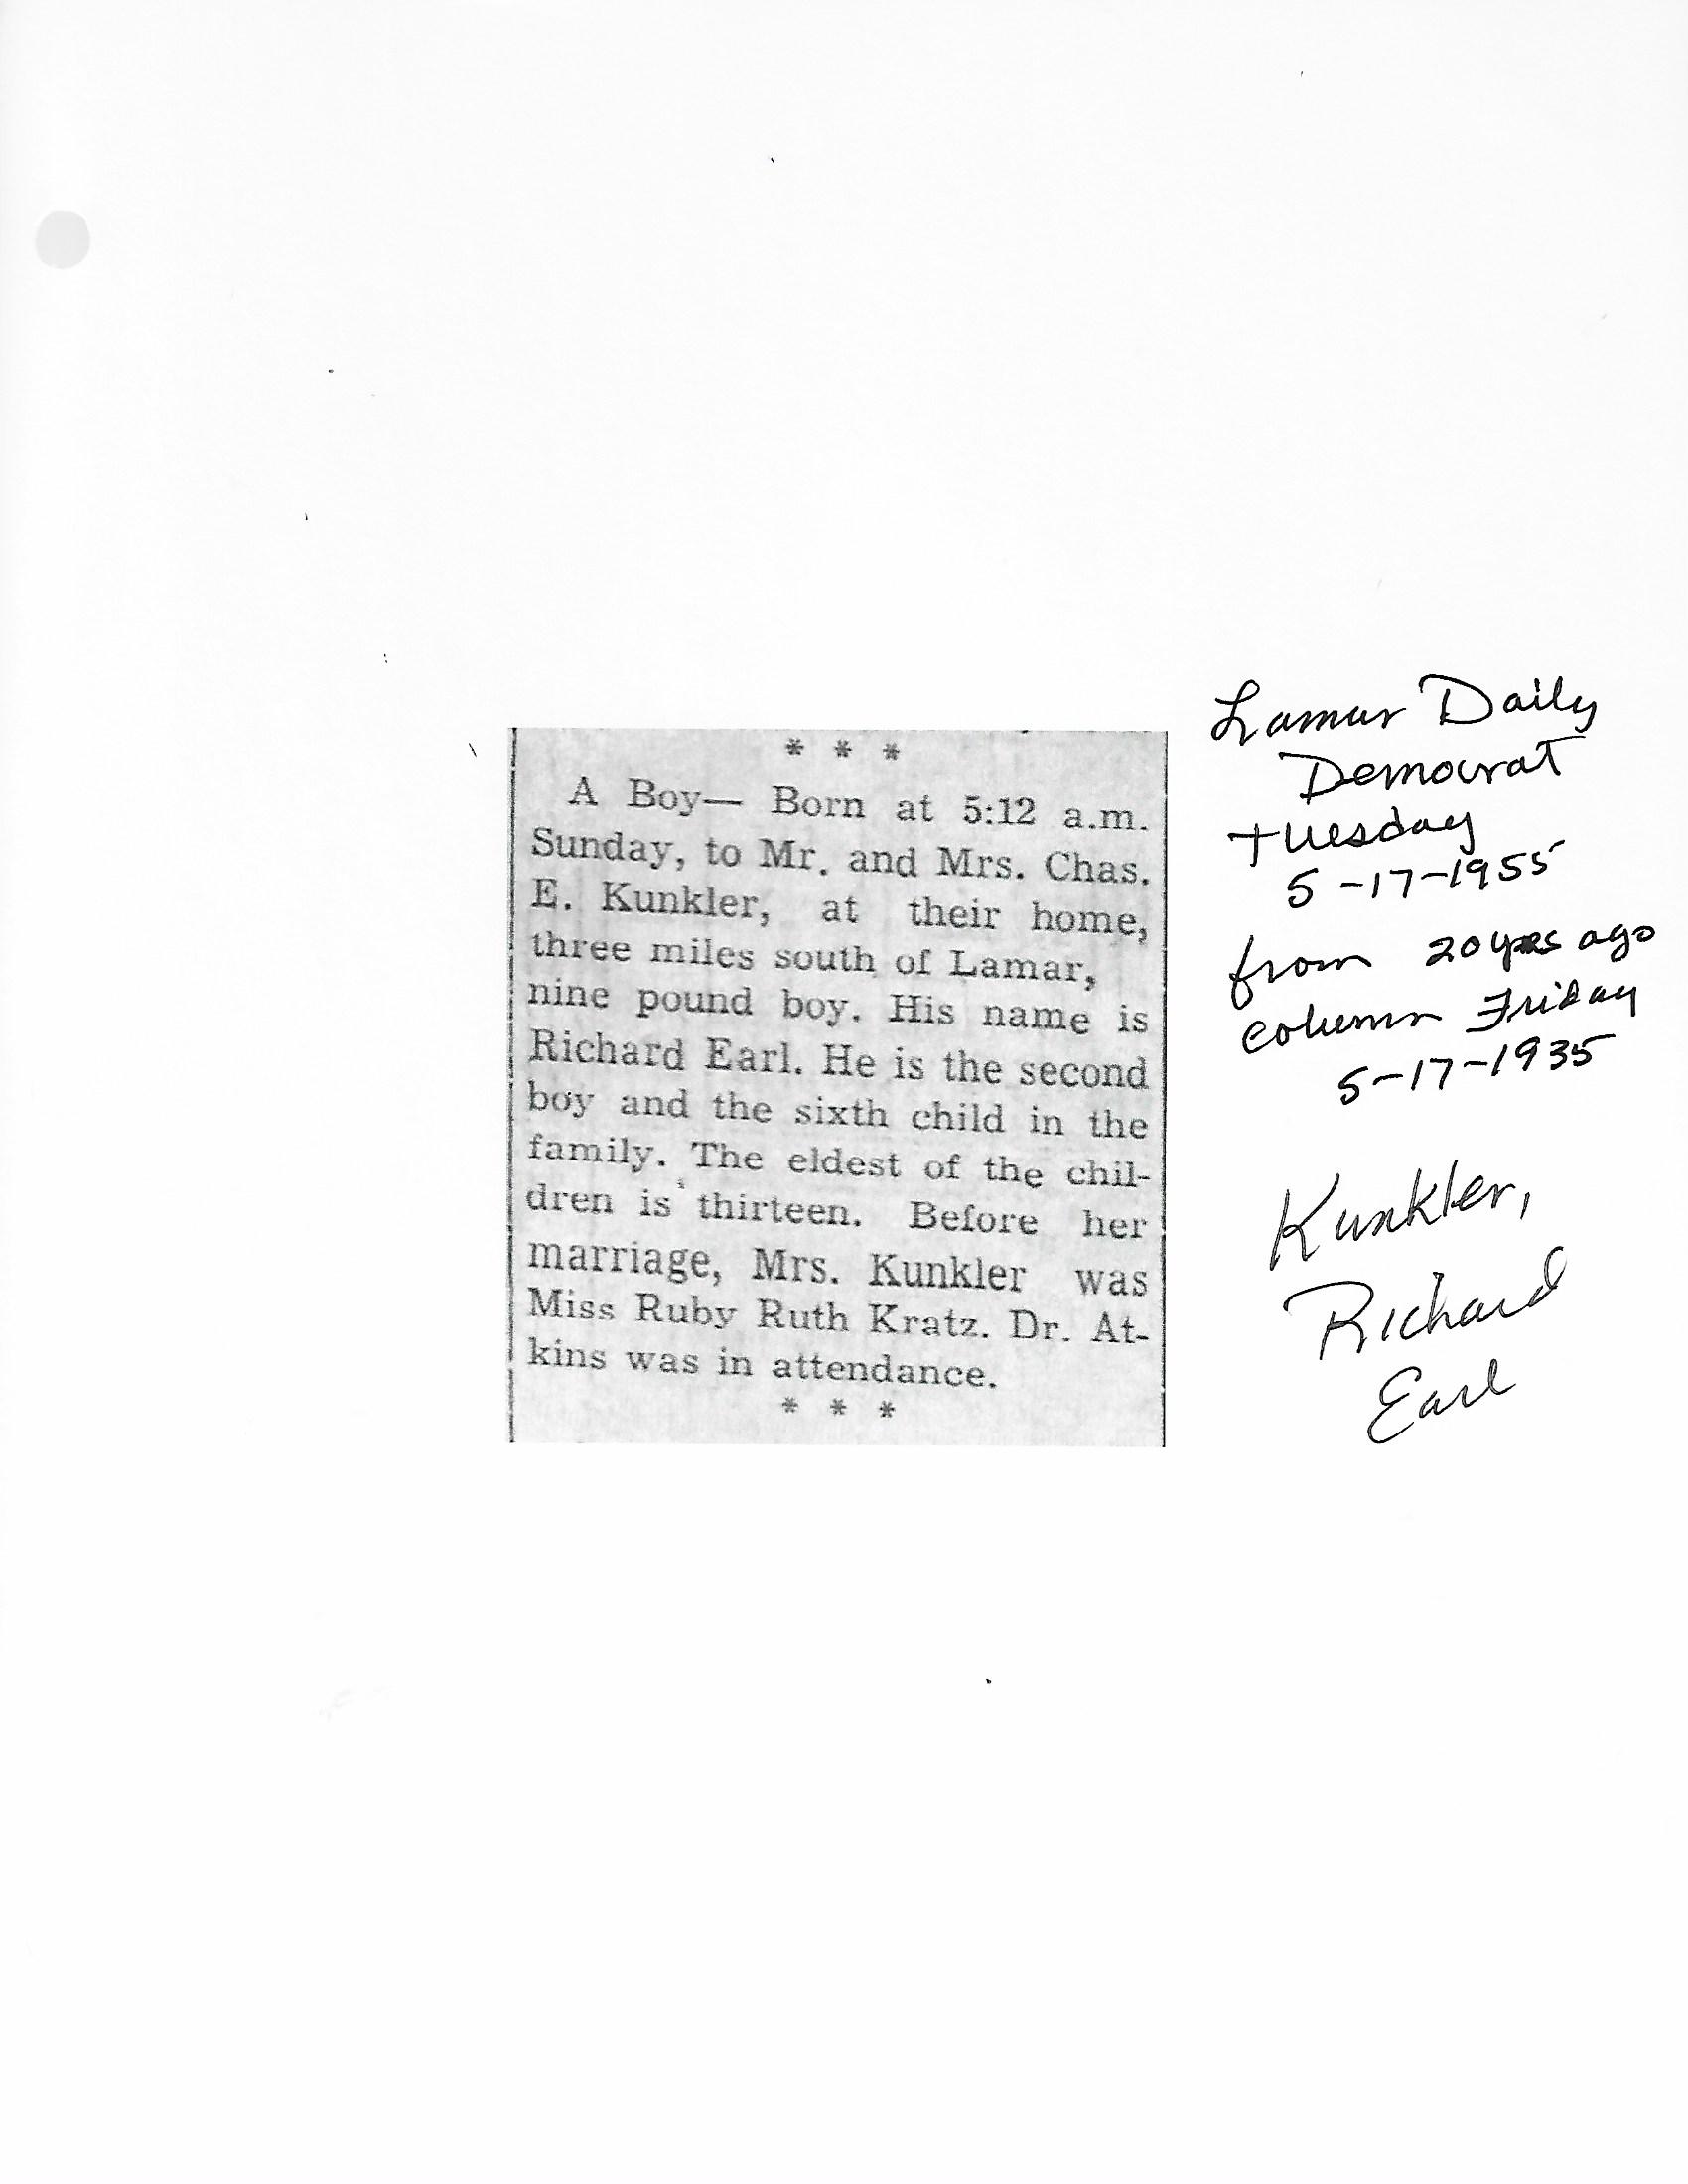 * * *
A Boy— Born at 5:12 a.m.
Sunday, to Mr. and Mrs. Chas.
E. Kunkler, at their home,
three miles south of Lamar,
nine pound boy. His name is
Richard Earl. He is the second
boy and the sixth child in the
family. The eldest of the chil-
dren is thirteen. Before her
marriage, Mrs. Kunkler was
Miss Ruby Ruth Kratz. Dr. At-
kins was in attendance.
* * *
Lamar Daily
Democrat
Tuesday
5-17-1955
from 20 yrs ago
column Friday
5-17-1935
Kunkler,
Richard
Earl